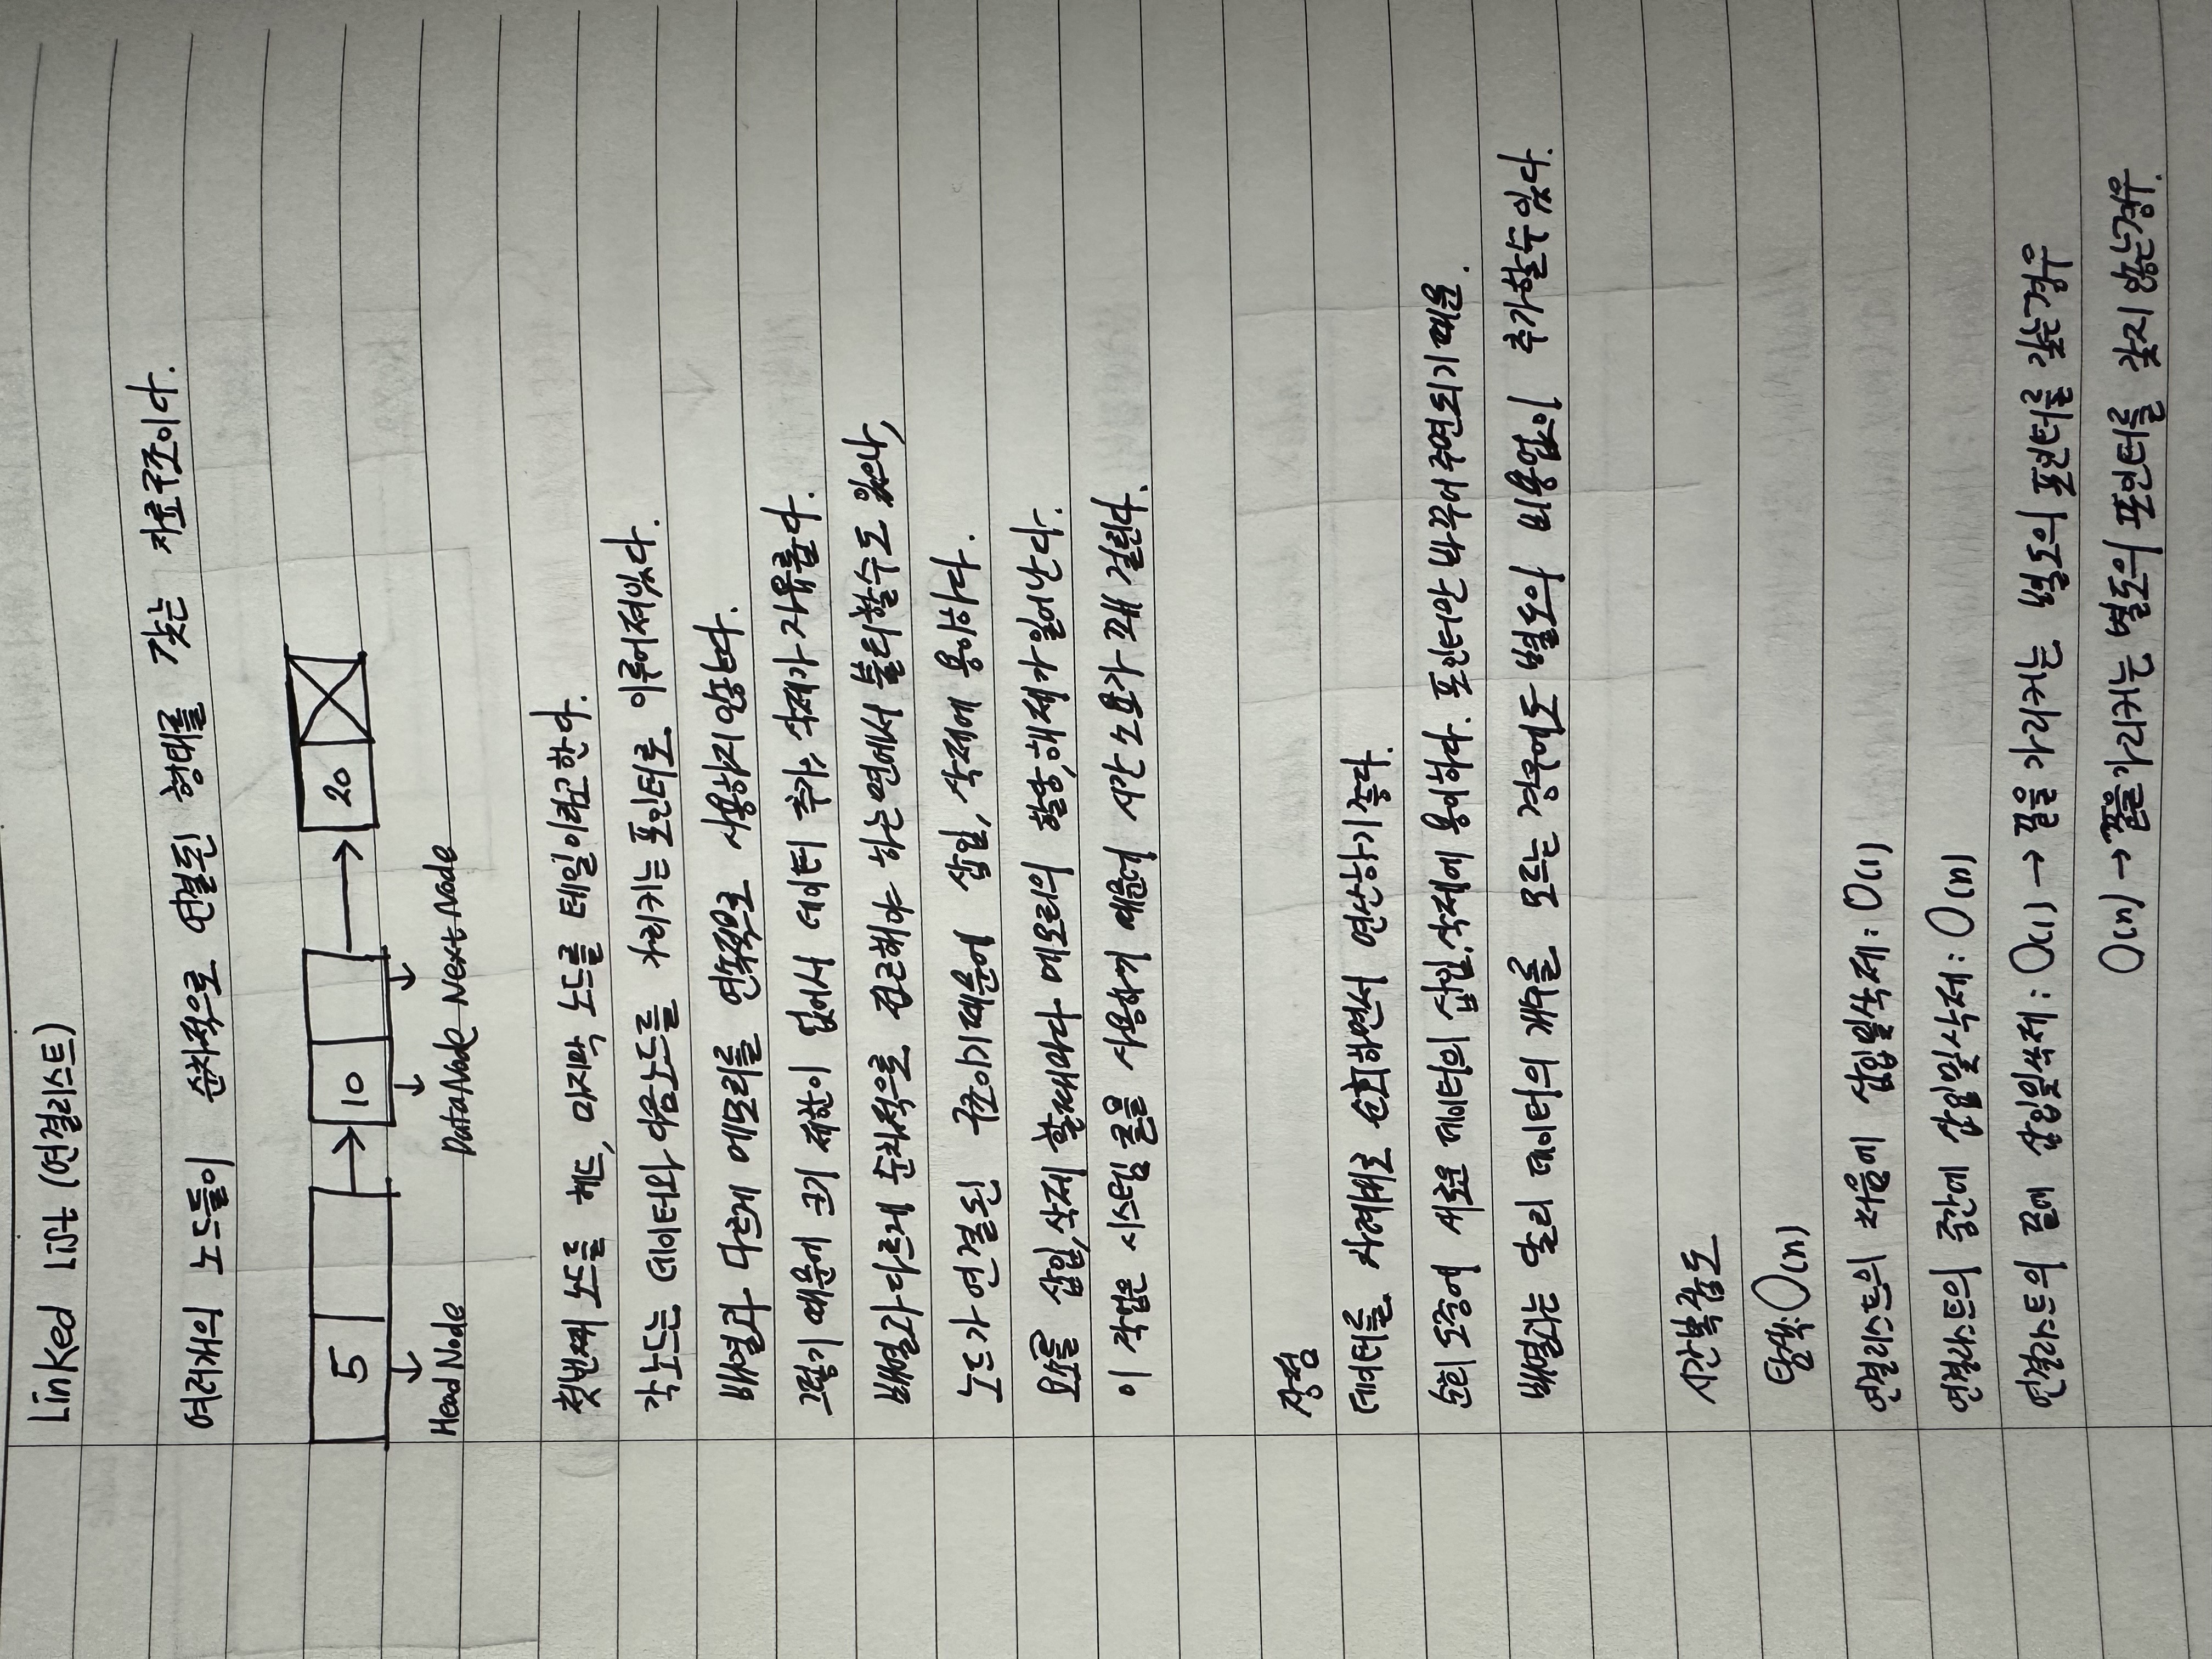 Linked List (연결리스트)
여러개의 노드들이 순차적으로 연결된 형태를 갖는 자료구조이다.
5 10 20
Head Node Data Node Next Node
첫번째 노드를 헤드, 마지막 노드를 테일이라고한다.
각 노드는 데이터와 다음노드를 가리키는 포인터로 이루어져있다.
배열과 다르게 메모리를 연속적으로 사용하지 않는다.
그렇기 때문에 크기 제한이 없어서 데이터 추가, 삭제가 자유롭다.
배열과 다르게 순차적으로 접근해야 하는면에서 불리할수도 있으나,
노드가 연결된 구조이기때문에 삽입, 삭제에 용이하다.
요소를 삽입, 삭제 할때마다 메모리의 할당, 해제가 일어난다.
이 작업은 시스템 콜을 사용하기 때문에 시간 소요가 꽤 걸린다.
장점
데이터를 차례대로 순회하면서 연산하기 좋다.
순회 도중에 새로운 데이터의 삽입, 삭제에 용이하다. 포인터만 바꾸어주면되기 때문.
배열과는 달리 데이터의 개수를 모르는 경우에도 별도의 비용없이 추가할수있다.
시간복잡도
탐색: O(n)
연결리스트의 처음에 삽입및삭제: O(1)
연결리스트의 중간에 삽입및삭제: O(n)
연결리스트의 끝에 삽입및삭제: O(1) → 끝을 가리키는 별도의 포인터를 갖는경우
O(n) → 끝을 가리키는 별도의 포인터를 갖지 않는경우.